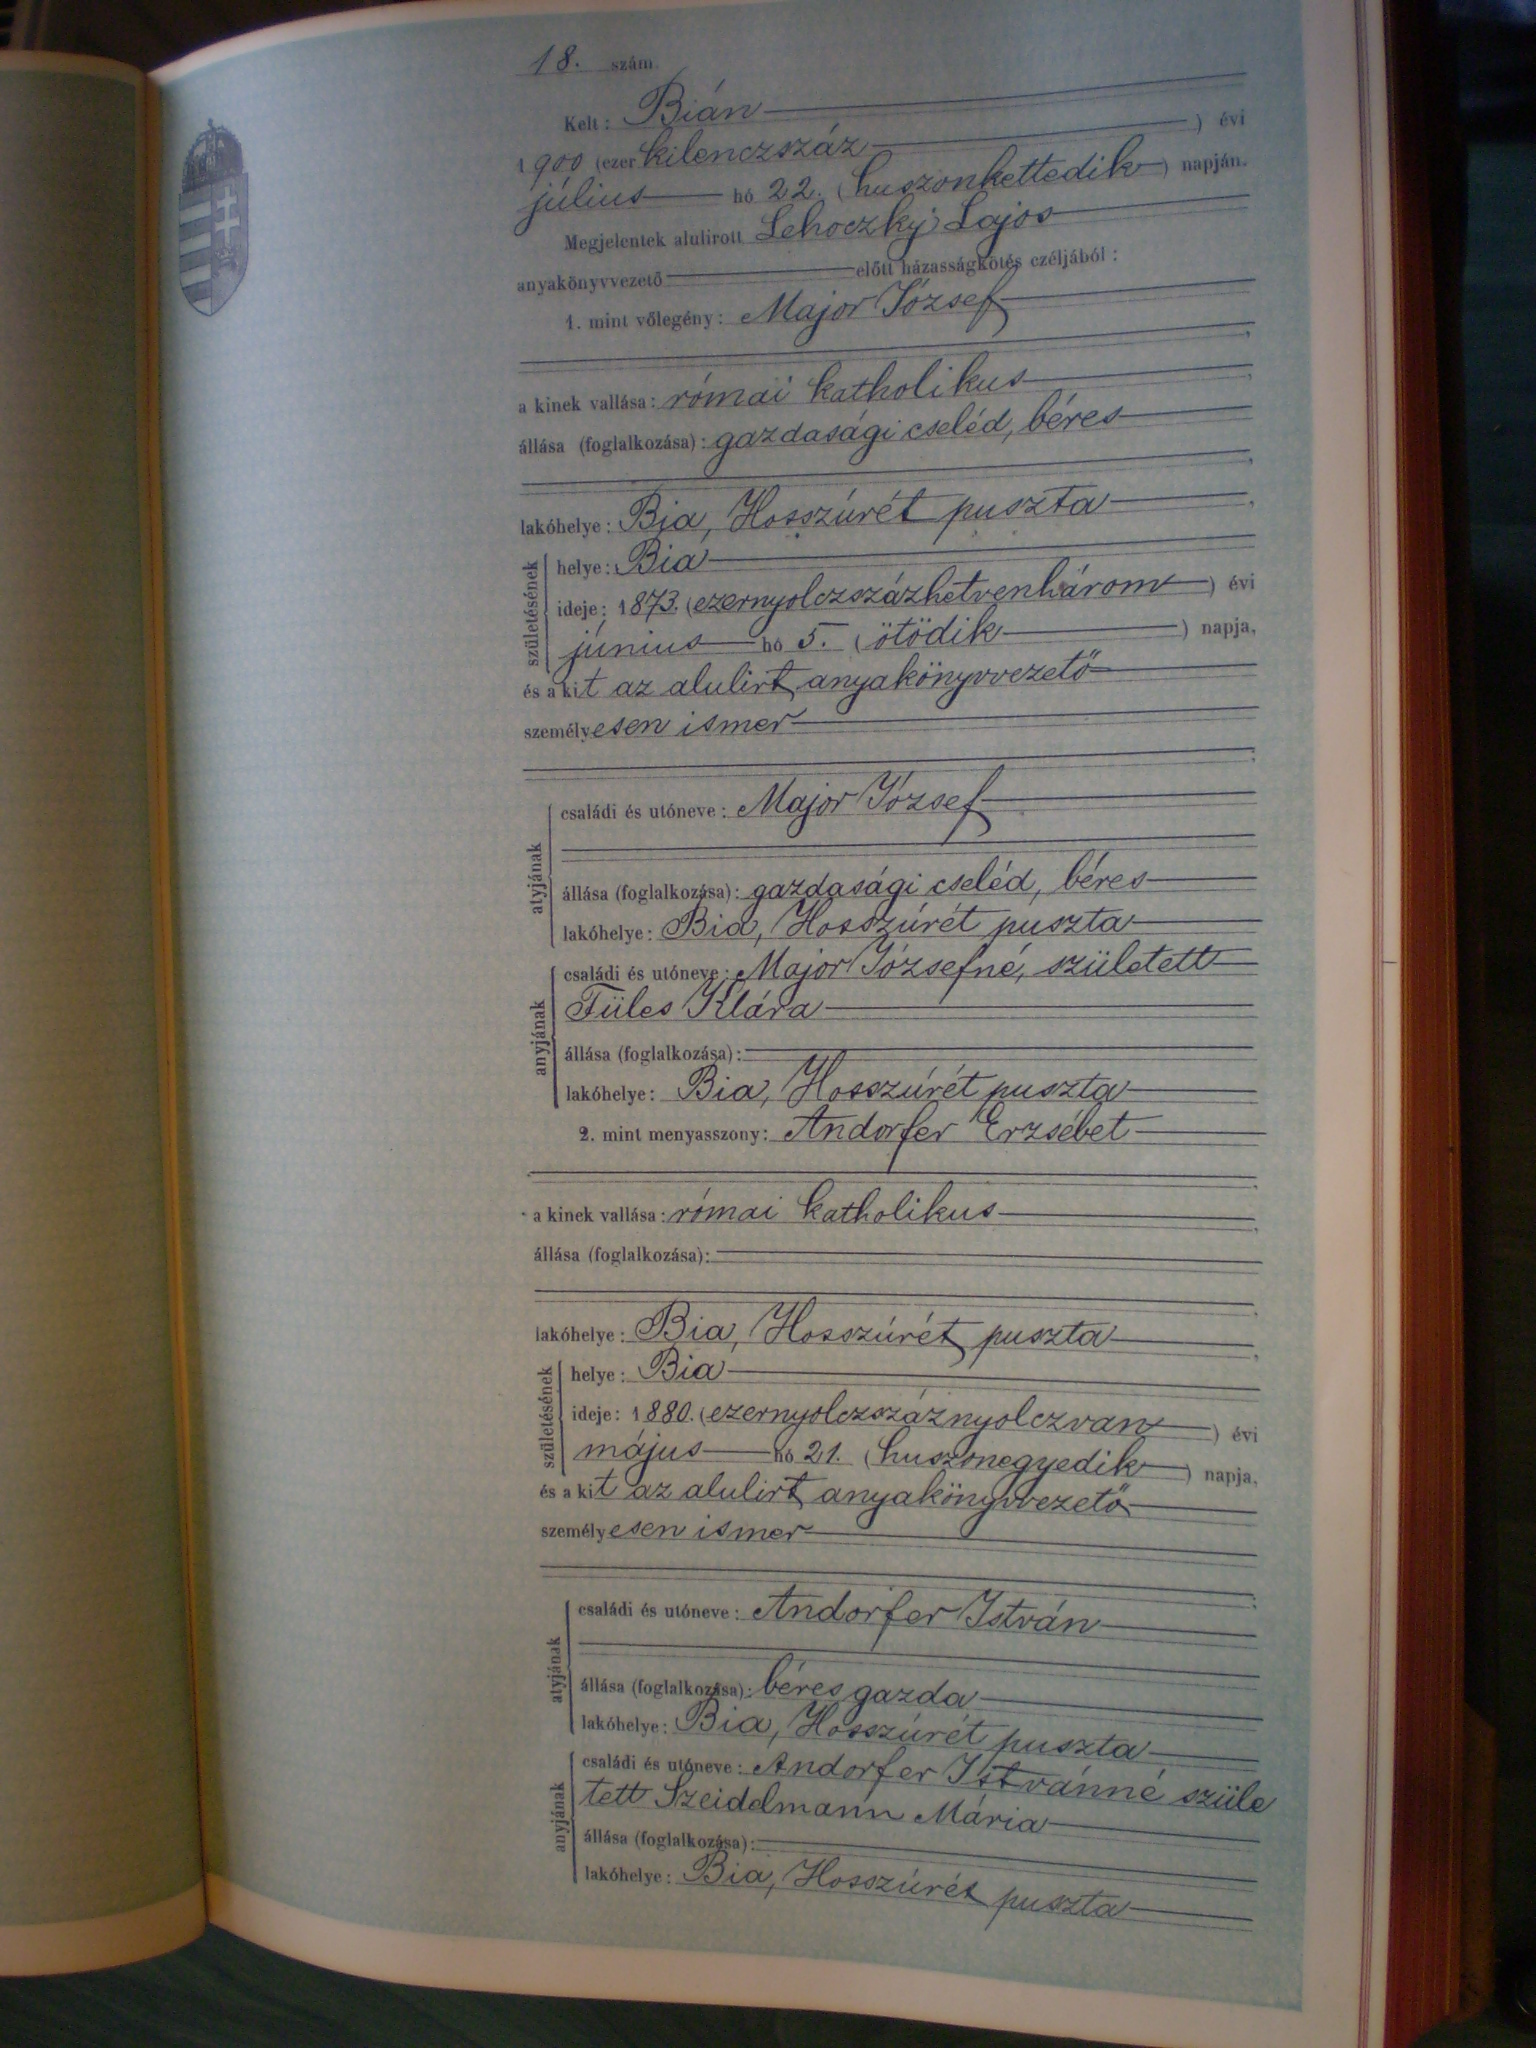 18. szám.
Kelt: Bián
1900 (ezer kilenczszáz) évi
július hó 22. (huszonkettedik) napján.
Megjelentek alulirott Lehoczky Lajos
anyakönyvvezető előtt házasságkötés czéljából:
1. mint vőlegény: Major József
a kinek vallása: római katholikus,
állása (foglalkozása): gazdasági cseléd, béres
lakóhelye: Bia, Hosszúrét puszta,
születésének
helye: Bia
ideje: 1873. (ezernyolczszázhetvenhárom) évi
június hó 5. (ötödik) napja,
és a kit az alulirt anyakönyvvezető
személyesen ismer
atyjának
családi és utóneve: Major József
állása (foglalkozása): gazdasági cseléd, béres
lakóhelye: Bia, Hosszúrét puszta
anyjának
családi és utóneve: Major Józsefné, született
Füles Klára
állása (foglalkozása):
lakóhelye: Bia, Hosszúrét puszta
2. mint menyasszony: Andorfer Erzsébet
a kinek vallása: római katholikus,
állása (foglalkozása):
lakóhelye: Bia, Hosszúrét puszta,
születésének
helye: Bia
ideje: 1880. (ezernyolczszáznyolczvan) évi
május hó 21. (huszonegyedik) napja,
és a kit az alulirt anyakönyvvezető
személyesen ismer
atyjának
családi és utóneve: Andorfer István
állása (foglalkozása): béres gazda
lakóhelye: Bia, Hosszúrét puszta
anyjának
családi és utóneve: Andorfer Istvánné szüle
tett Szeidelmann Mária
állása (foglalkozása):
lakóhelye: Bia, Hosszúrét puszta